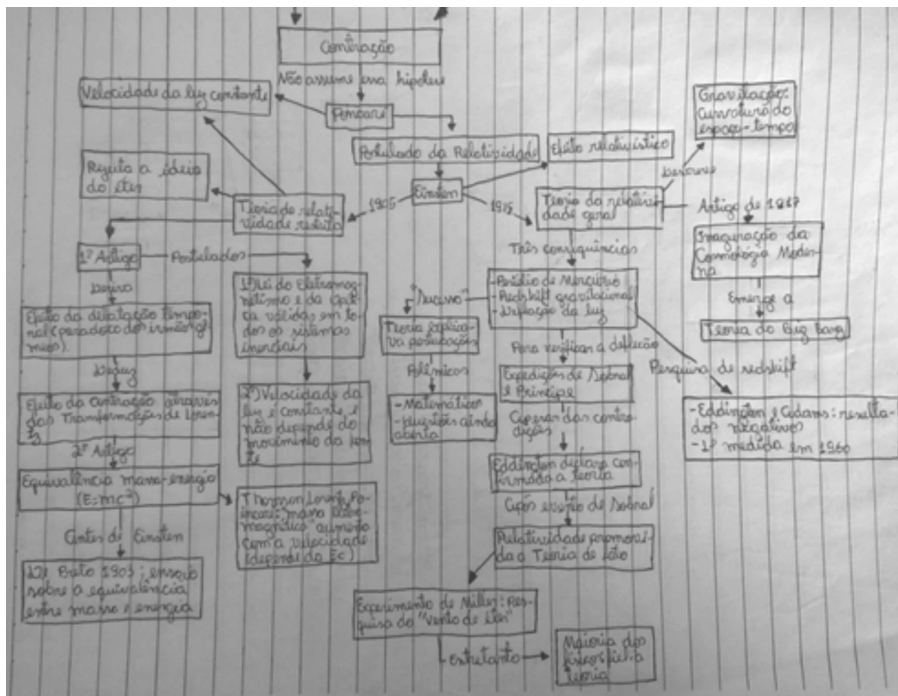 Contração
Não assume essa hipótese
Velocidade da luz constante
Poincaré
Postulado da Relatividade
Efeito relativístico
Gravitação:
Curvatura do
espaço-tempo
Descreve
Rejeita a ideia
do éter
Einstein
1905
1915
Teoria da relati-
vidade restrita
Teoria da relativi-
dade geral
Artigo de 1917
Inauguração da
Cosmologia Moder-
na
Emerge a
Teoria do Big Bang
1º Artigo
Postulados
Deriva
Efeito da dilatação tempo-
ral (paradoxo dos irmãos gê-
meos).
Deduz
Efeito da contração através
das Transformações de Loren-
tz
2º Artigo
Equivalência massa-energia
(E=mc²)
Antes de Einstein
De Preto 1903: ensaio
sobre a equivalência
entre massa e energia
1º) do Eletromag-
netismo e da Ópti-
ca válidas em to-
dos os sistemas
inerciais
2º) Velocidade da
luz é constante, e
não depende do
movimento da fonte
Thomson, Lorentz, Poi-
ncaré: massa
aumenta
com a velocidade
(depende da Ec)
Três consequências
-Periélio de Mercúrio
-Redshift gravitacional
-Deflexão da luz
"Sucesso"
Teoria explica-
va perturbações
Polêmicas
-Matemáticas
-questões ainda
aberta
Para verificar a deflexão
Expedições de Sobral
e Príncipe
Apesar das contra-
dições
Eddington declara con-
firmada a teoria
Após eclipse de Sobral
Relatividade promovi-
da a Teoria de fato
Experimento de Miller: Pes-
quisa do "Vento de éter"
Entretanto
Maioria dos
físicos fiel à
teoria
Pesquisa de redshift
-Eddington e Adams: resulta-
dos negativos
-1ª medida em 1960